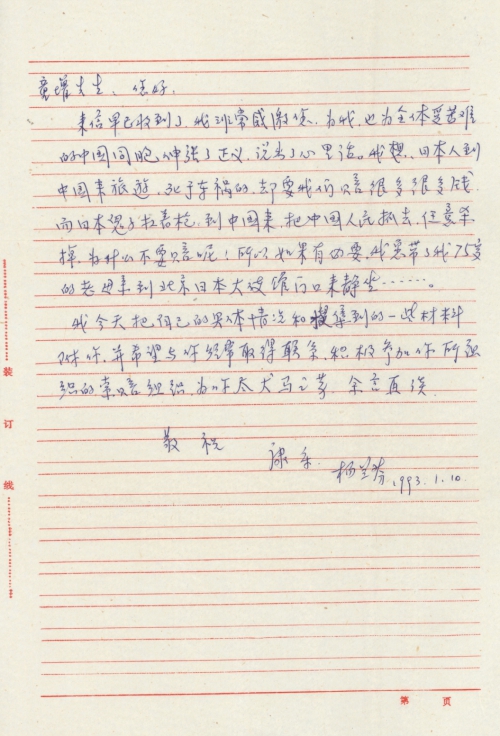 童增先生、您好,
来信早已收到了,我非常感谢您,为我,也为全体受苦难
的中国同胞伸张了正义,说出了心里话。我想,日本人到
中国来旅遊,死于车祸的,却要我们赔很多很多钱,
而日本鬼子扛着枪,到中国来,把中国人民抓去,任意杀
掉,为什么不要赔呢!所以如果有必要,我要带了我75岁
的老母亲到北京日本大使馆门口来静坐……。
我今天把自己的具体情况和搜集到的一些材料
附你,并希望与你经常取得联系,积极参加你所组
织的索赔组织,为你太犬马之劳,余言再谈
敬祝
康乐
杨兰芬
1993.1.10.
装
订
线
第 页